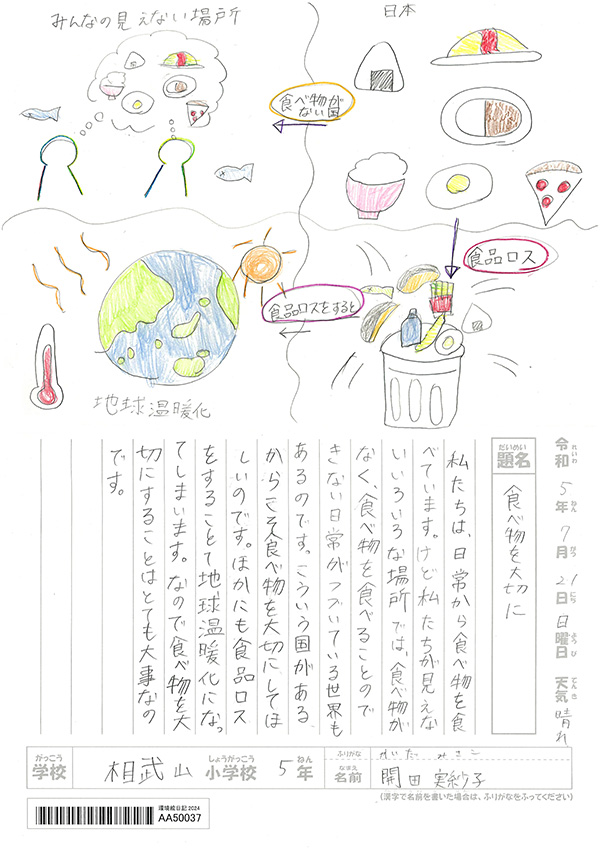 みんなの見えない場所
日本
食べ物が
ない国
食品ロス
食品ロスをすると
地球温暖化
令和5年7月21日日曜日 天気 晴れ
れいわ ねん がつ にち ようび てんき
だいめい
題名
食べ物を大切に
私たちは、日常から食べ物を食
べています。けど私たちが見えな
いいろいろな場所では、食べ物が
なく、食べ物を食べることので
きない日常がつづいている世界も
あるのです。こういう国がある
からこそ食べ物を大切にしてほ
しいのです。ほかにも食品ロス
をすることで地球温暖化になっ
てしまいます。なので食べ物を大
切にすることはとても大事なの
です。
がっこう しょうがっこう ねん
学校 相武山 小学校 5年
ふりがな かいた みさこ
なまえ
名前 開田 実紗子
(漢字で名前を書いた場合は、ふりがなをふってください)
環境絵日記2024
AA50037